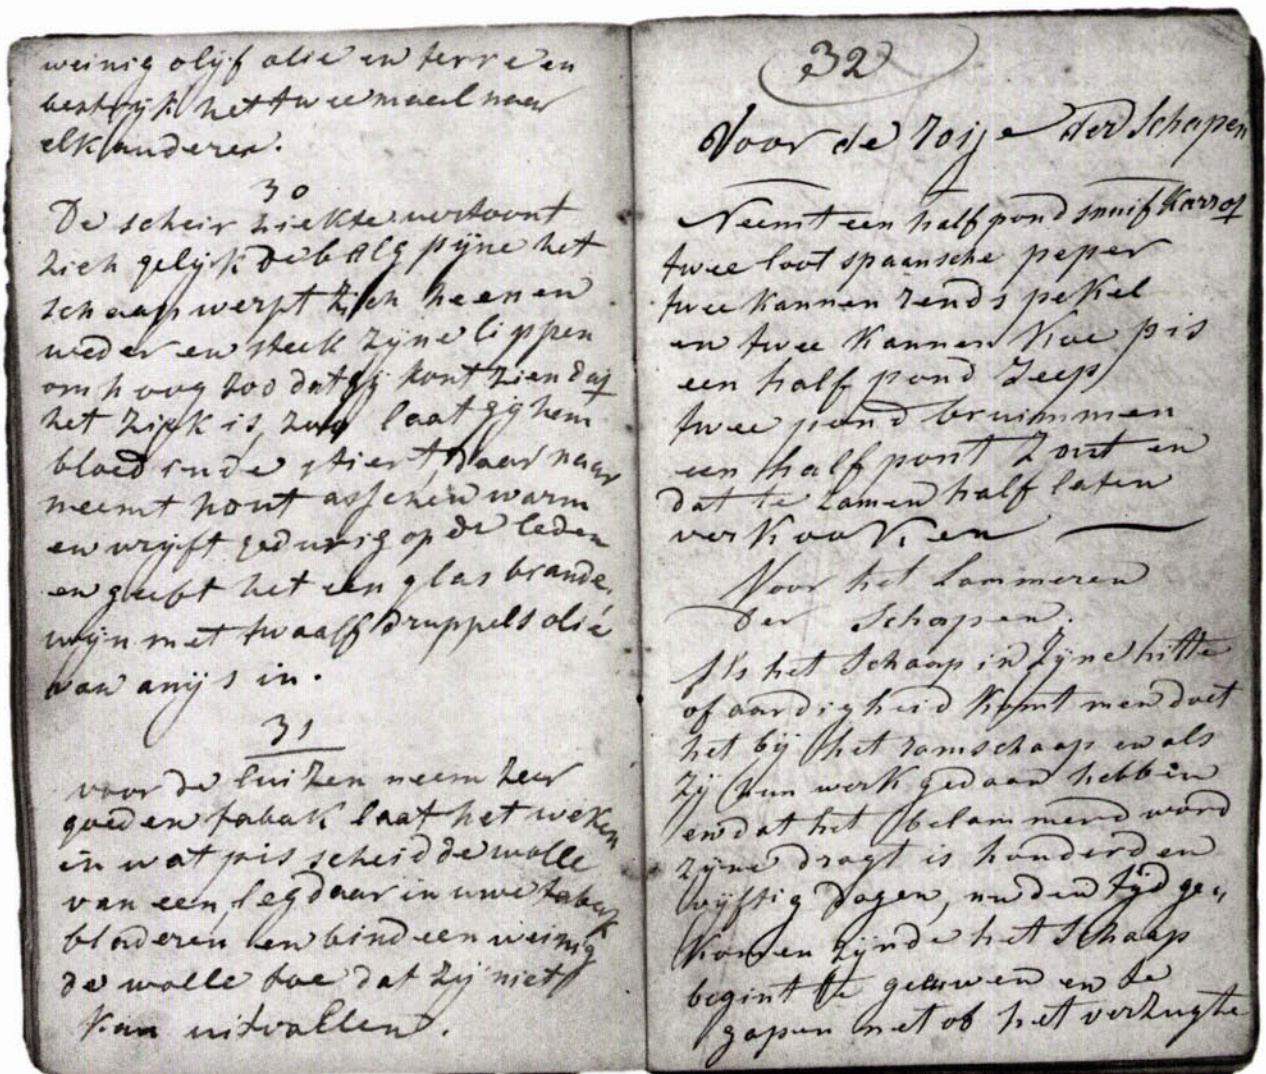 weinig olijf olie en terre en
bestrijk het twee maal naar
elk anderen.
30
De scheir ziekte vertoont
zich gelijk de balg pijne het
schaap werpt zich heen en
weder en steek zijne lippen
om hoog zoo dat gij kont zien dat
het ziek is, laat gij hem
bloed in de stiert, daar naar
neemt hout asschen warm
en wrijft gedurig op de leden
en geeft het een glas brande,
wijn met twaalf druppels olie
van anijs in.
31
voor de luizen neem zeer
goeden tabak laat het weken
in wat pis scheid de wolle
van een, leg daar in uwe tabak
bladeren en bind een weinig
de wolle toe dat zij niet
kan uitvallen.
32
Voor de roije der Schapen
Neemt een half pond snuif karrot
twee loot spaansche peper
twee kannen rends pekel
en twee kannen koe pis
een half pond zeep
twee pond bruimmen
een half pont zout en
dat te zamen half laten
verkooken
Voor het Lammeren
Der Schapen.
Als het Schaap in zijne hitte
of aardigheid komt men doet
het bij het ramschaap en als
zij hun werk gedaan hebben
en dat het belammerd word
zijne dragt is honderd en
vijftig dagen, nu den tijd ge,,
komen zijnde het Schaap
begint te geeuwen en te
gapen net of het verzugte